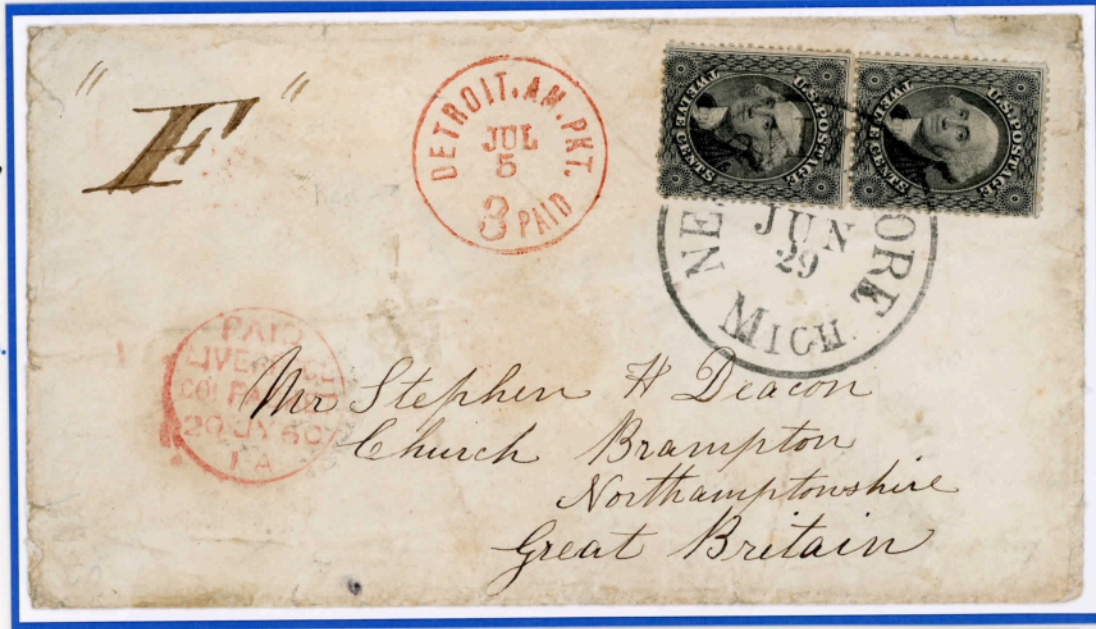 " F "
DETROIT. AM. PKT.
JUL
5
3 PAID
U.S. POSTAGE
TWELVE CENTS
U.S. POSTAGE
TWELVE CENTS
JUN
29
MICH
PAID
20 JY 60
Mr Stephen H Deacon
Church Brampton
Northamptonshire
Great Britain